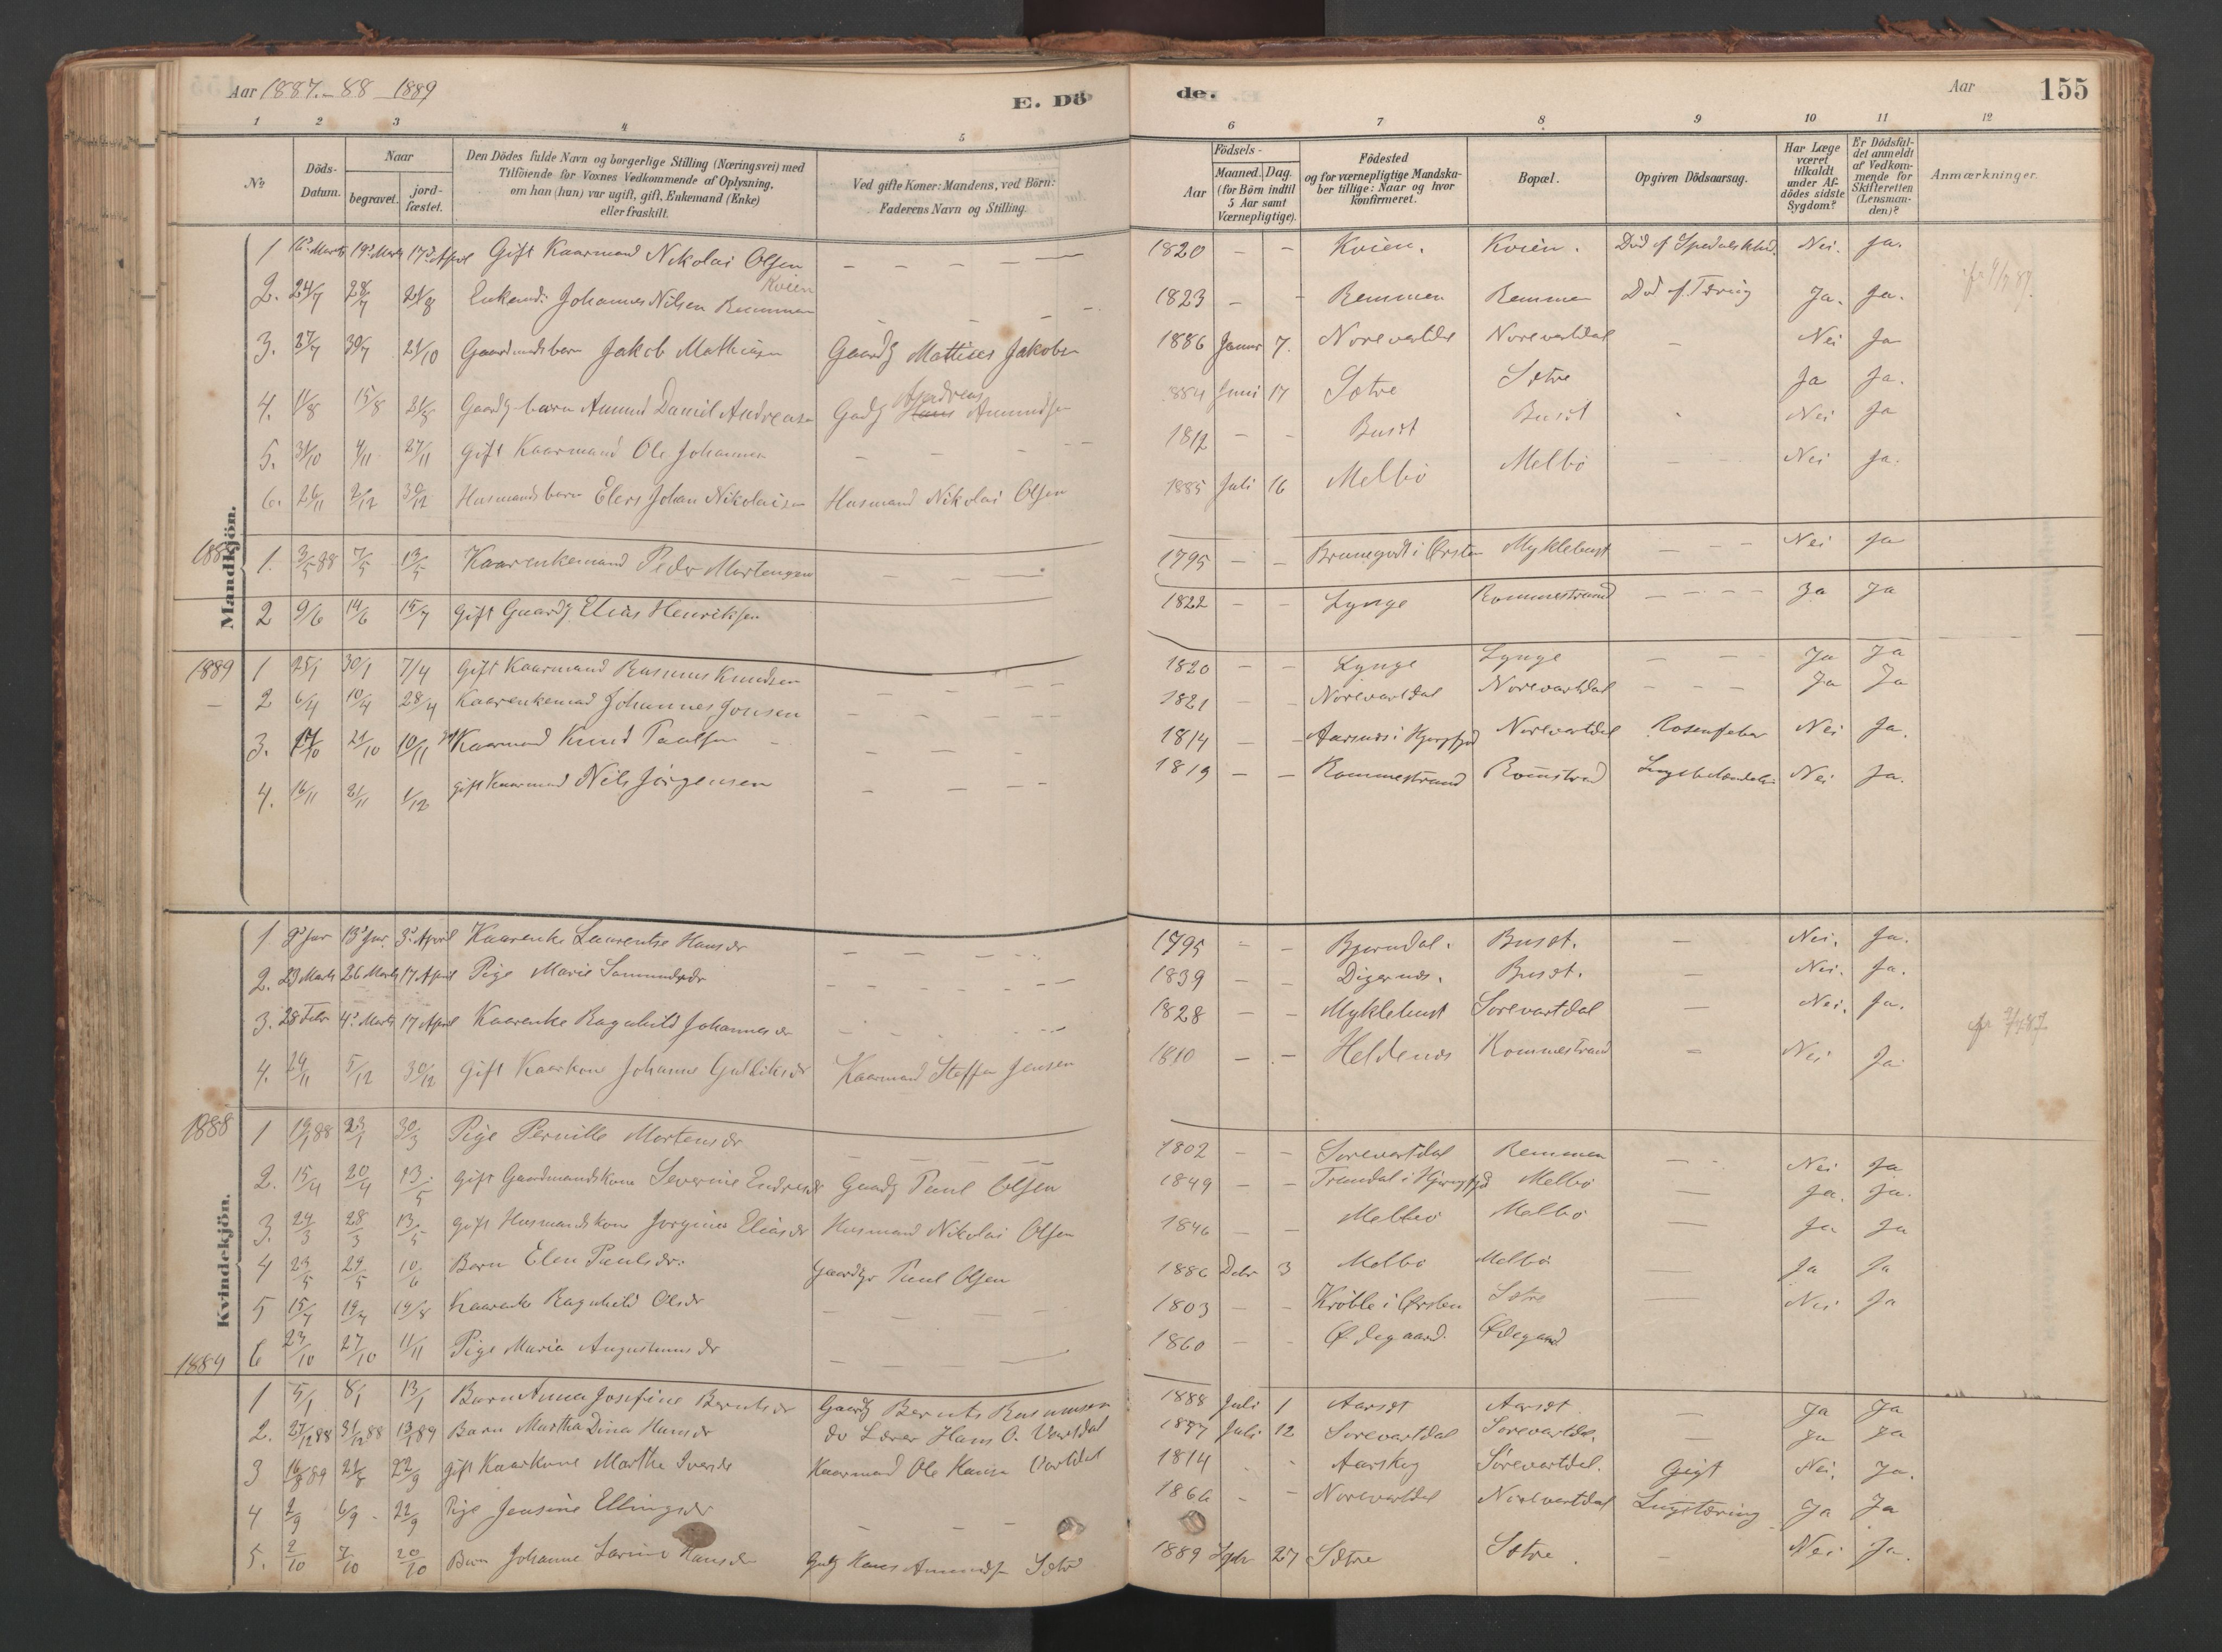 Aar 1887.-88 - 1889
E. Dö
de.
Aar
155
1 2 3 4 5 6 7 8 9 10 11 12
No
Döds-Datum.
Naar
begravet.
jord-fæstet.
Den Dödes fulde Navn og borgerlige Stilling (Næringsvei) med
Tilföiende for Voxnes Vedkommende af Oplysning,
om han (hun) var ugift, gift, Enkemand (Enke)
eller fraskilt.
Ved gifte Koner: Mandens, ved Börn:
Faderens Navn og Stilling.
Aar
Födsels-
Maaned. Dag.
(for Börn indtil
5 Aar samt
Værnepligtige).
Födested
og for værnepligtige Mandska-
ber tillige: Naar og hvor
konfirmeret.
Bopæl.
Opgiven Dödsaarsag.
Har Læge
været
tilkaldt
under Af-
dödes sidste
Sygdom?
Er Dödsfal-
det anmeldt
af Vedkom-
mende for
Skifteretten
(Lensman-
den)?
Anmærkninger.
Mandkjön.
1 16' Marts 19' Marts 17' April Gift Kaarmand Nikolai Olsen Kvien - - - - 1820 - - Kvien. Kvien. Död af Spedalskhed. Nei. Ja.
2. 24/7 28/7 21/8 Enkemd: Johannes Nilsen Remmen - - - 1823 - - Remmen Remmen Död af Tæring Ja. Ja.
3. 27/7 30/7 21/10 Gaardmandsbarn Jakob Mathiasen Gaardbr Mathias Jakobsen 1886 Januar 7. Norevartdal Norevartdal - Nei Ja
4. 11/8 15/8 21/8 Gaardbr barn Amund Daniel Andreasen Gadbr Andreas Amundsen 1884 Juni 17 Sætre Sætre Ja Ja.
5. 31/10 4/11 27/11 Gift Kaarmand Ole Johannesen - - - 1812 - - Buset Buset - Nei Ja
6. 26/11 2/12 30/12 Husmandsbarn Elers Johan Nikolaisen Husmand Nikolai Olsen 1885 Juli 16 Melbö Melbö - Nei Ja.
1888 1. 3/5 88 7/5 13/5 Kaarenkemand Peder Martenssen - - - 1795 - - Brunegodt i Ørsten Myklebust - - - Nei Ja
2 9/6 14/6 15/7 Gift Gaardbr. Elias Henriksen 1822 - - Lynge Rommestrand - - - - Ja Ja
1889 1 25/1 30/1 7/4 Gift Kaarmand Rasmus Knudsen - - - - 1820 - - Lynge Lynge - - - Ja Ja
2 6/4 10/4 28/4 Kaarenkemad Johannes Jonsen - - - - 1821 - - Norevartdal Norevartdal - - - Ja Ja
3. 17/10 21/10 10/11 Gft Kaarmand Knud Paulsen - - - 1814 - - Aarsnes i Hjørgfjrd Norevartdal Rosenfeber Nei Ja.
4. 16/11 21/11 1/12 gift Kaarmand Nils Jörgensen - - - - 1819 - - Rommestrand Romstrad Lungebetændelse Nei Ja.
Kvindekjön.
1. 9' Jan 13' Jan. 3' April Kaarenke Laurentse Hansdr - - - - 1795 - - Bjørndal. Buset. - Nei. Ja.
2. 23 Marts 26 Marts 17 April Pige Marie Samundsdr - - - - 1839 - - Digernes. Buset. - Nei. Ja.
3. 28 Febr 4' Marts 17 April Kaarenke Ragnhild Johannesdr - - - 1828 - - Myklebust Sørevartdal - Nei. Ja.
4. 29/11 5/12 30/12 Gift Kaarkone Johanne Gulliksdr Kaarmand Steffen Jensen 1810 - - Heldenes Rommestrand - Nei Ja
1888 1 19/1 88 23/1 30/3 Pige Pernille Mortensdr - - - 1802 - - Sørevartdal Remmen - Nei Ja
2. 15/4 20/4 13/5 gift Gaardmandskone Severine Endresdr Gaardbr Paul Olsen 1849 - - Trandal i Hjørngfjd Melbö - Ja. Ja.
3. 24/3 28/3 13/5 gift Husmandskone Jorgine Eliasdr Husmand Nikolai Olsen 1846 - - Melbö Melbö - Ja Ja
4 23/5 29/5 10/6 Barn Elen Paulsdr. Gaardbr Paul Olsen 1886 Debr 3 Melbö Melbö - Ja Ja
5 15/7 19/7 19/8 Kaarenke Ragnhild Olsdr - - - - 1803 - - Kröble i Ørsten Sætre - Nei Ja
6 23/10 27/10 11/11 Pige Maria Augustinusdr - - - - 1860 - - Ødegaard. Ødegaard
1889 1 5/1 8/1 13/1 Barn Anna Josefine Berntsdr Gaardbr Bernts Rasmussen 1888 Juli 1 Aarset Aarset. - Ja Ja
2. 27/12 88 31/12 88 13/1 89 Barn Martha Dina Hansdr do Lærer Hans O. Vartdal 1887 Juli 12 Sørevartdal Sørevartdal. - Ja Ja
3 16/8 89 21/8 22/9 gift Kaarkone Marthe Iversdr Kaarmand Ole Hansen Vartdal 1814 - - Aarskog Sørevartdal. Gigt Nei. Ja.
4 2/9 6/9 - 22/9 Pige Jensine Ellingsdr - - - 1866 - - Norevartdal Norevartdal Lungetæring Ja Ja
5. 2/10 7/10 20/10 Barn Johanne Larine Hansdr Gadbr Hans Amundsn Sætre 1889 Sptbr 27 Sætre Sætre. - Nei Ja.